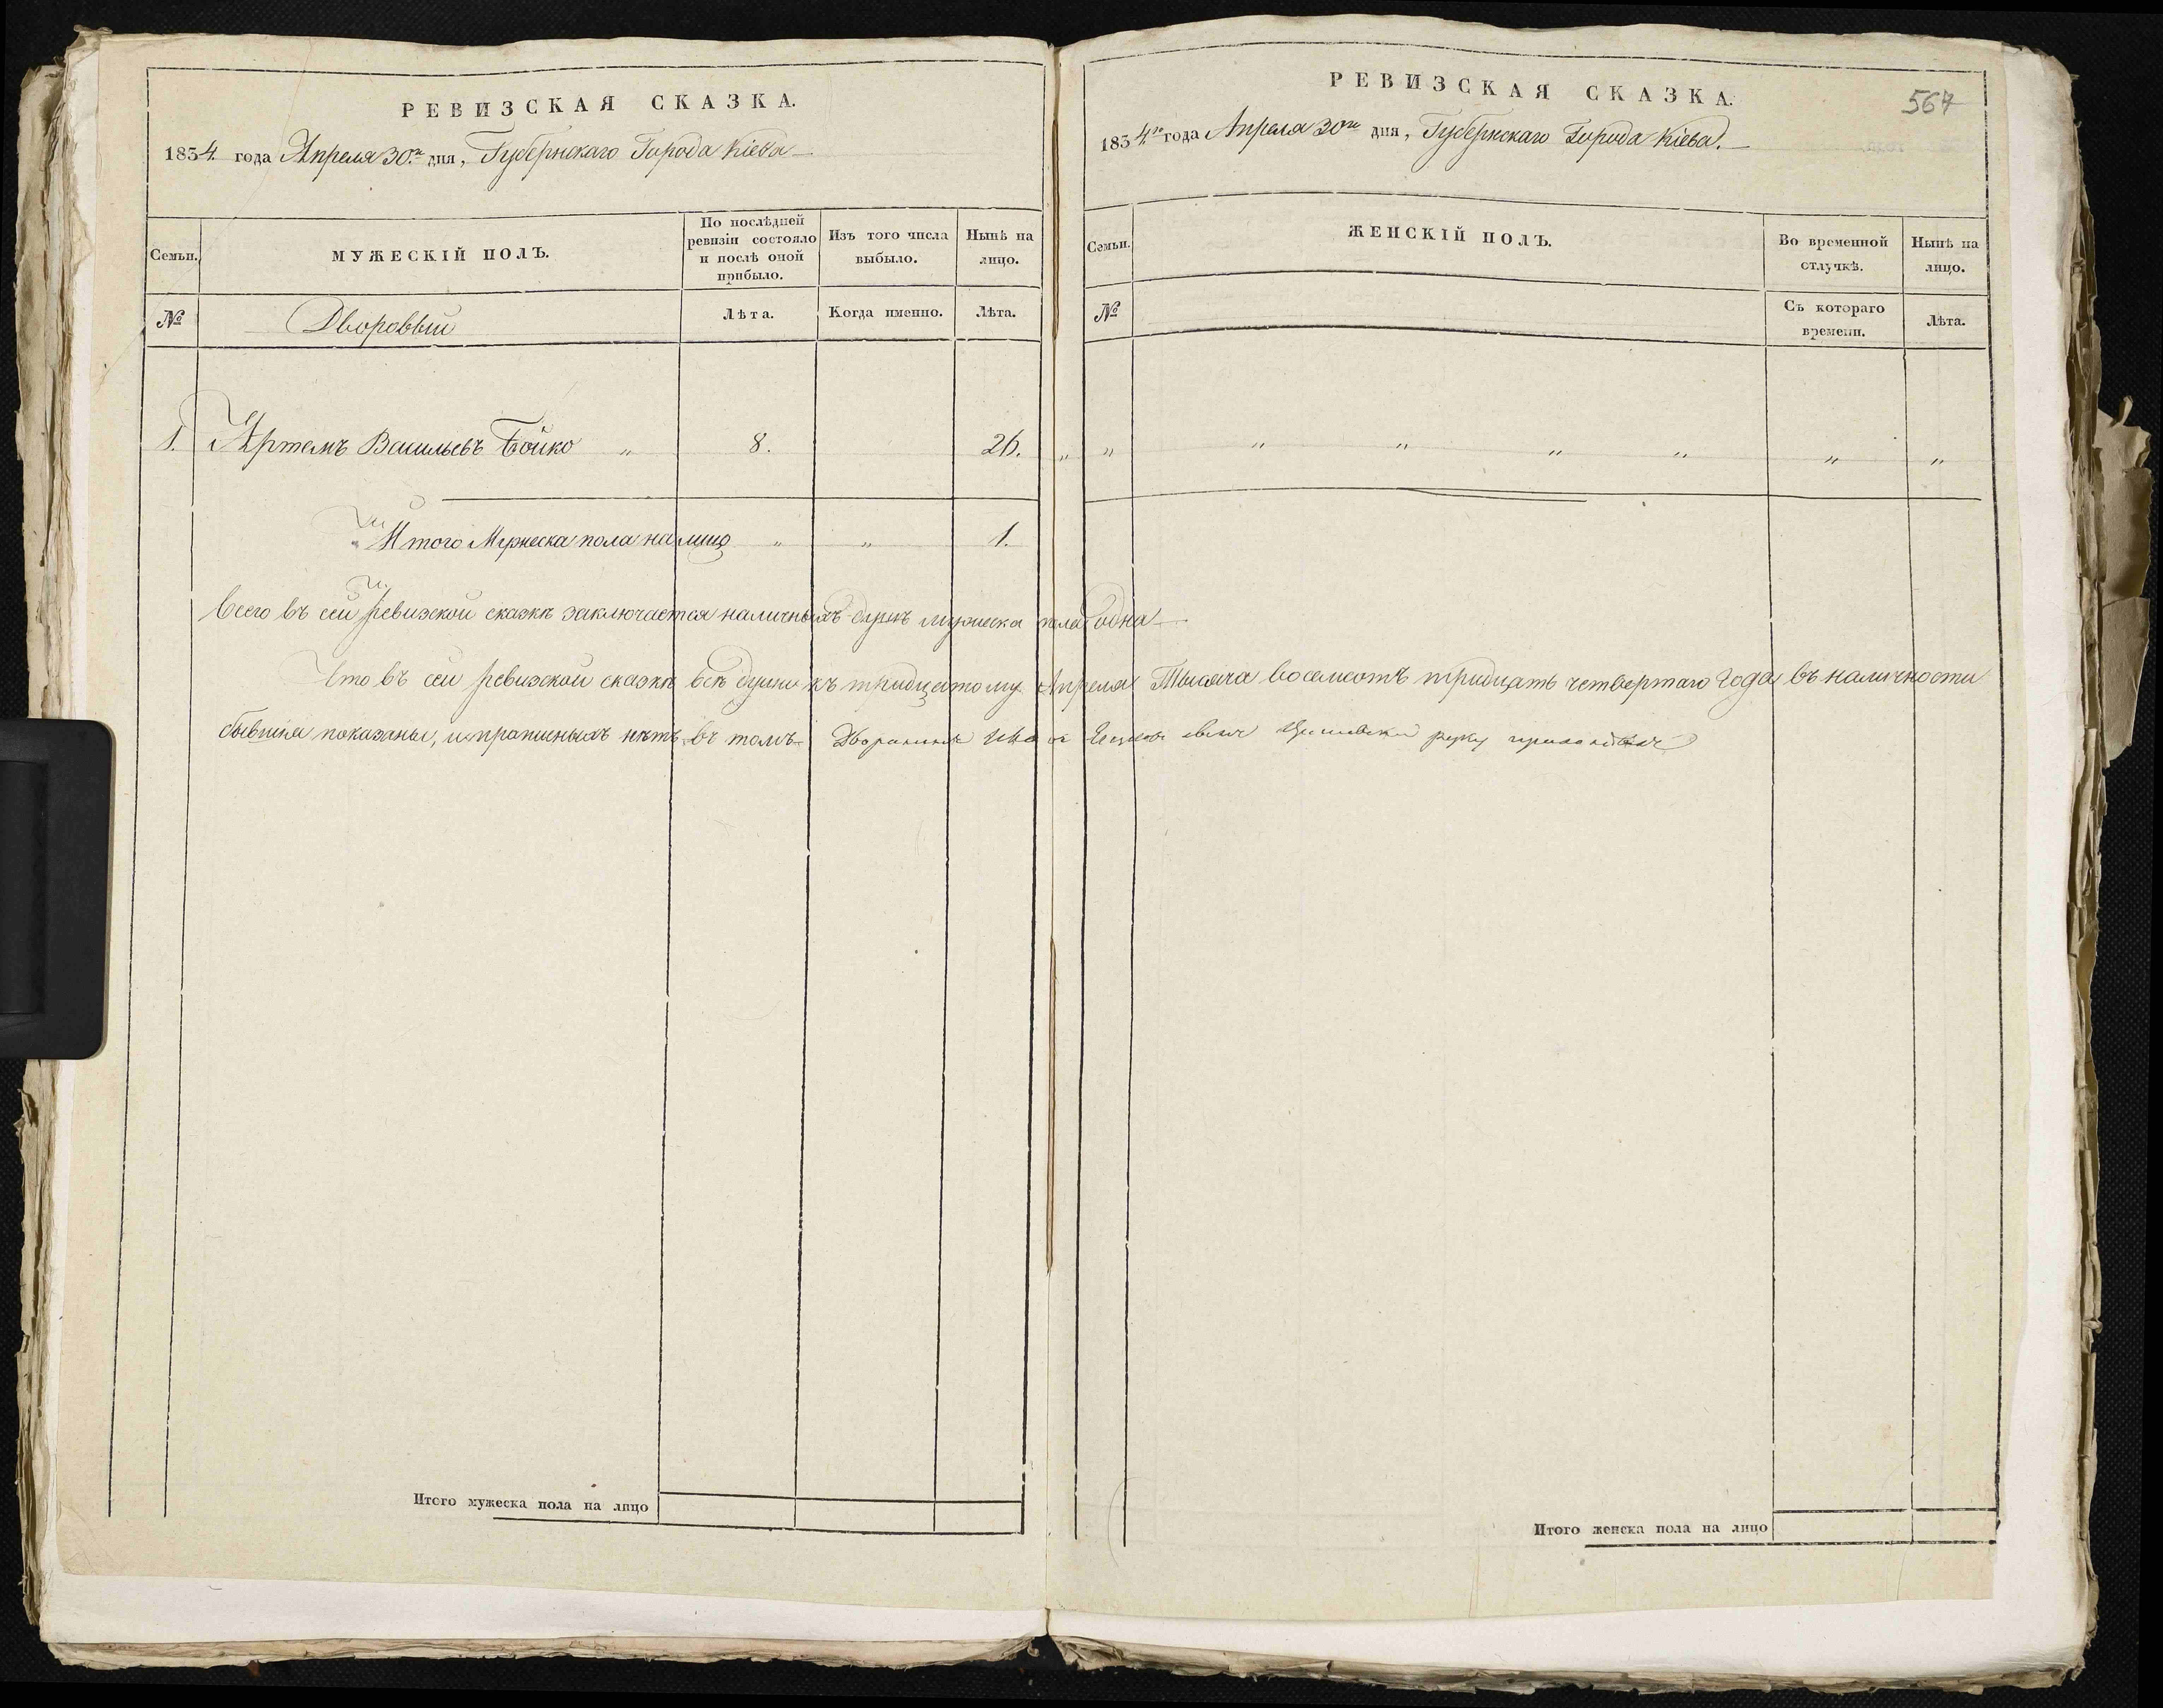 РЕВИЗСКАЯ СКАЗКА.
1834. года Апреля 30го дня, Губернскаго Города Кіева
Семьи.
МУЖЕСКІЙ ПОЛЪ.
По послѣдней ревизіи состояло и послѣ оной прибыло.
Изъ того числа выбыло.
Нынѣ на лицо.
№
Дворовый
Лѣта.
Когда именно.
Лѣта.
1. Артемъ Васильевъ Бойко " 8. 26. "
Итого Мужеска пола налицо " " 1.
Всего въ сей ревизской сказкѣ заключается наличныхъ душъ мужеска пола одна
Что въ сей ревизской сказкѣ всѣ души къ тридцатому Апреля Тысяча восемсотъ тридцать четвертаго Года въ наличности
бывшія показаны, и прописныхъ нѣтъ въ томъ Дворянинъ руку приложилъ
Итого мужеска пола на лицо
РЕВИЗСКАЯ СКАЗКА.
567
1834.го года Апреля 30го дня, Губернскаго Города Кіева.
Семьи.
ЖЕНСКІЙ ПОЛЪ.
Во временной отлучкѣ.
Нынѣ на лицо.
№
Съ котораго времени.
Лѣта.
" " " " " " "
Итого женска пола на лицо